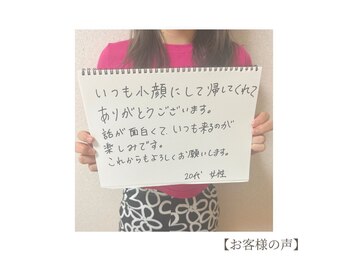 いつも小顔にして帰してくれて
ありがとうございます。
話が面白くて、いつも来るのが
楽しみです。
これからもよろしくお願いします。
20代 女性
【お客様の声】